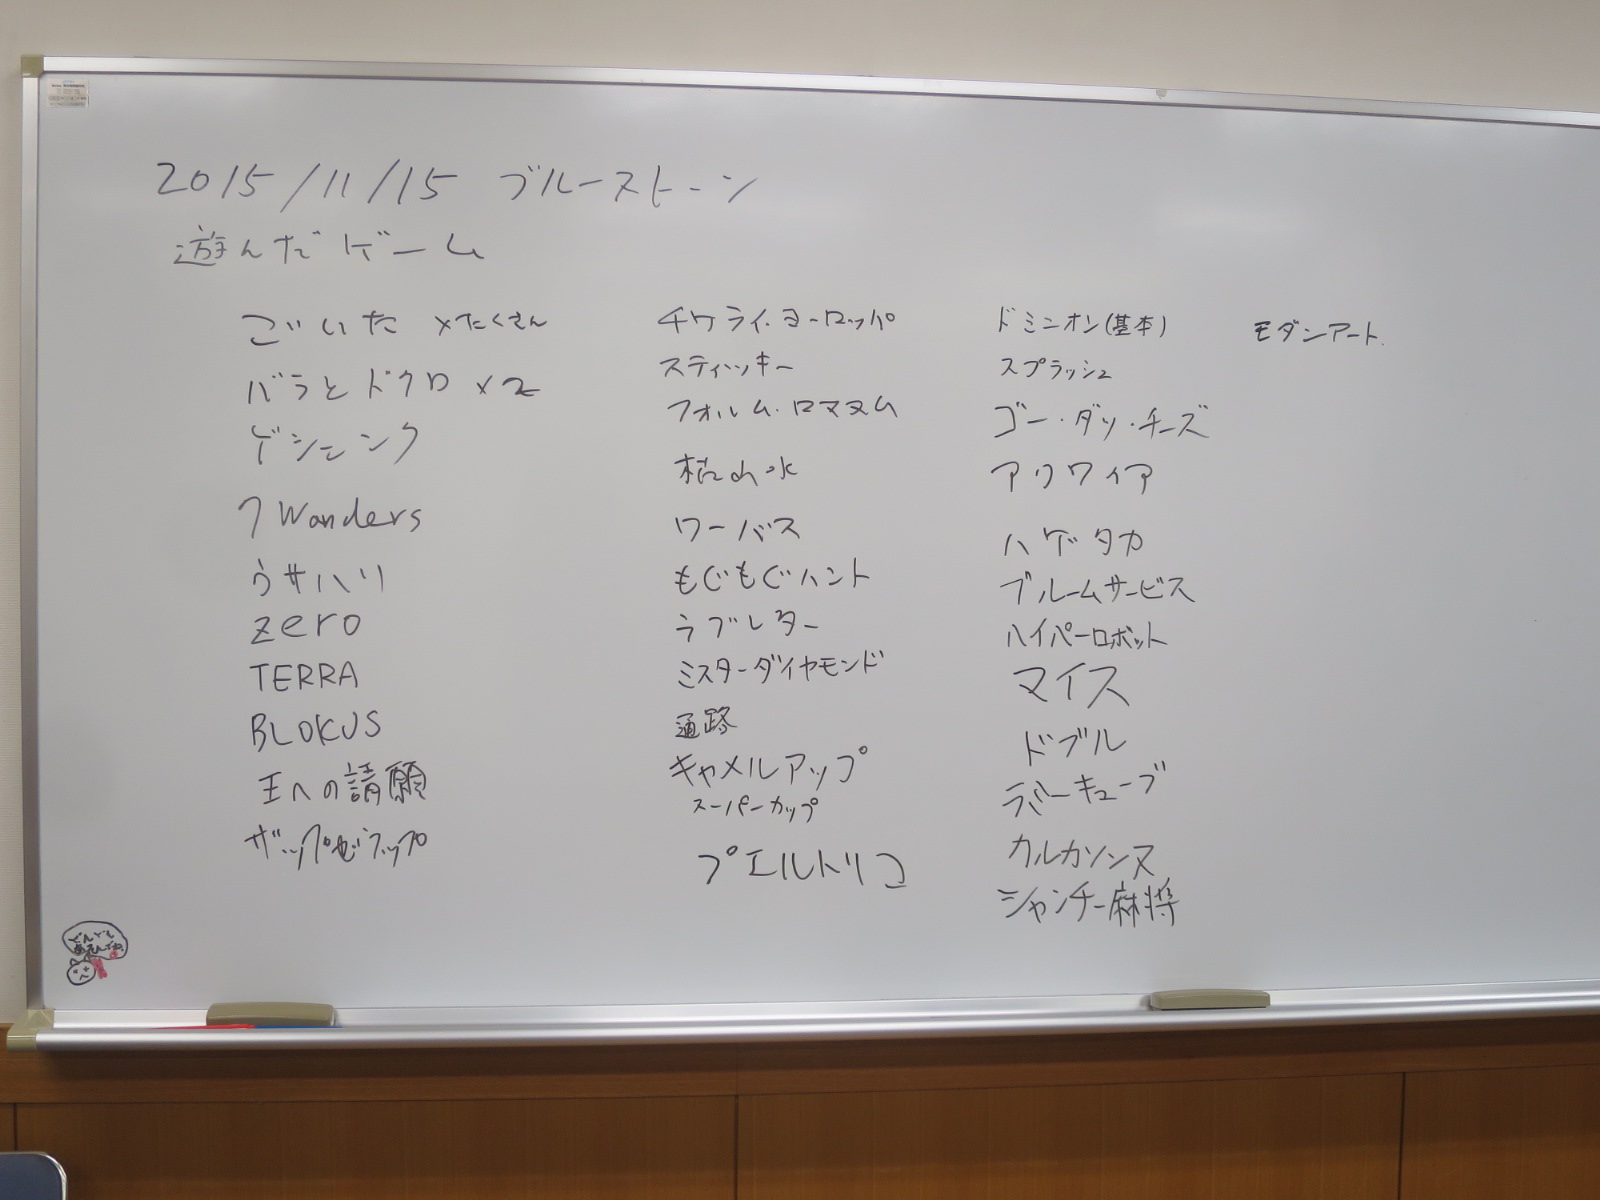 2015/11/15 ブルーストーン
遊んだゲーム
ごいた ×たくさん
バラとドクロ ×2
ゲシェンク
7 Wonders
ウサハリ
zero
TERRA
BLOKUS
王への請願
ザップゼラップ
チケライ・ヨーロッパ
スティッキー
フォルム・ロマヌム
枯山水
ワーバス
もぐもぐハント
ラブレター
ミスターダイヤモンド
通路
キャメルアップ
スーパーカップ
プエルトリコ
ドミニオン(基本)
スプラッシュ
ゴー・ダッ・チーズ
アクワイア
ハゲタカ
ブルームサービス
ハイパーロボット
マイス
ドブル
ラバーキューブ
カルカソンヌ
シャンチー麻将
モダンアート
どんどん
あそんでね